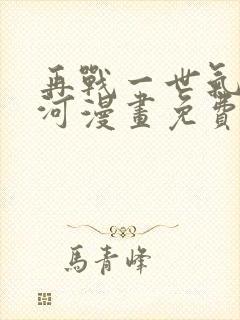 再戰一世氣
河漫畫免費
馬青峰